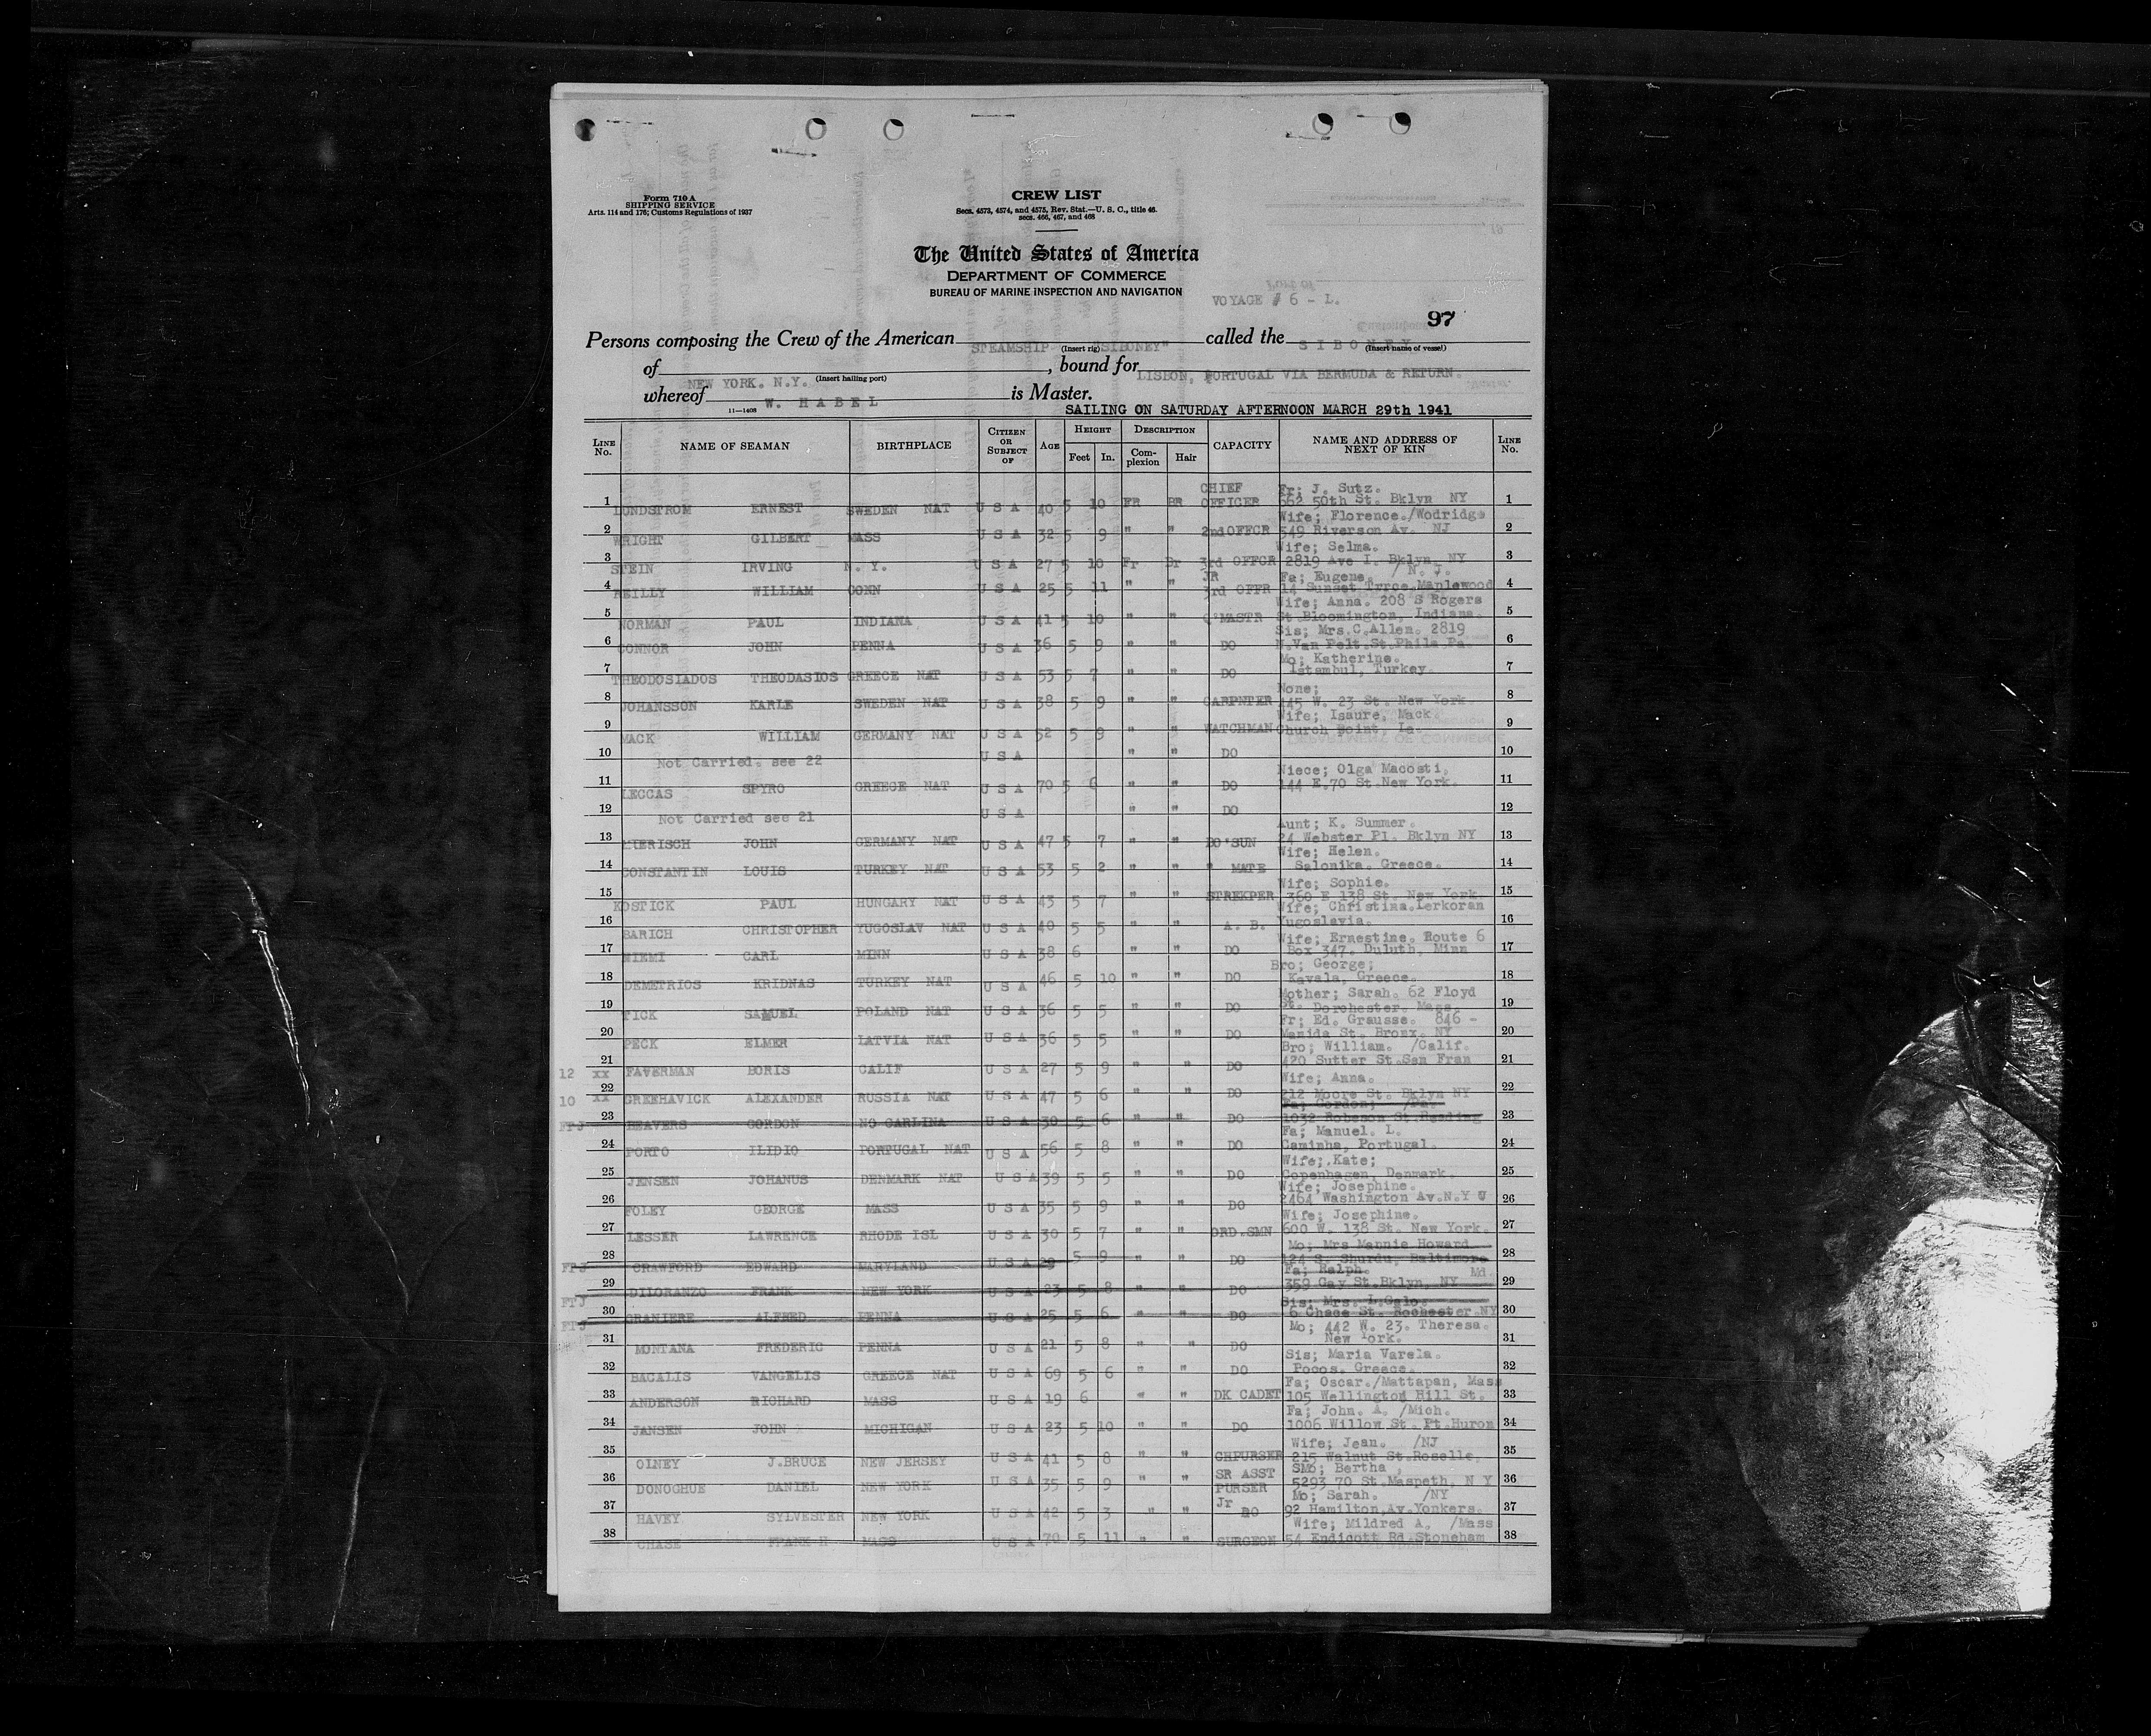 Form 710 A
SHIPPING SERVICE
Arts. 114 and 176; Customs Regulations of 1937
CREW LIST
Secs. 4573, 4574, and 4575, Rev. Stat.—U. S. C., title 46.
secs. 466, 467, and 468
The United States of America
DEPARTMENT OF COMMERCE
BUREAU OF MARINE INSPECTION AND NAVIGATION
VOYAGE # 6 - L.
97
Persons composing the Crew of the American STEAMSHIP "SIBONEY" called the S I B O N E Y
(Insert rig) (Insert name of vessel)
of NEW YORK. N.Y. , bound for LISBON, PORTUGAL VIA BERMUDA & RETURN.
(Insert hailing port)
whereof W. H A B E L is Master.
11—1408
SAILING ON SATURDAY AFTERNOON MARCH 29th 1941
LINE No. NAME OF SEAMAN BIRTHPLACE CITIZEN OR SUBJECT OF AGE HEIGHT Feet In. DESCRIPTION Complexion Hair CAPACITY NAME AND ADDRESS OF NEXT OF KIN LINE No.
1 LUNDSTROM ERNEST SWEDEN NAT U S A 40 5 10 FR BR CHIEF OFFICER Fr; J. Sutz. 662 50th St. Bklyn NY 1
2 WRIGHT GILBERT MASS U S A 32 5 9 " " 2nd OFFCR Wife; Florence./Wodridge 549 Riverson Av. NJ 2
3 STEIN IRVING N. Y. U S A 27 5 10 Fr Br 3rd OFFCR Wife; Selma. 2819 Ave I. Bklyn, NY 3
4 REILLY WILLIAM CONN U S A 25 5 11 " " JR 3rd OFFR Fa; Eugene. / N. J. 14 Sunset Trrce.Maplewood 4
5 NORMAN PAUL INDIANA U S A 41 5 10 " " Q'MASTR Wife; Anna. 208 S Rogers St.Bloomington, Indiana. 5
6 CONNOR JOHN PENNA U S A 36 5 9 " " DO Sis; Mrs.C.Allen. 2819 N.Van Pelt.St.Phila Pa. 6
7 THEODOSIADOS THEODASIOS GREECE NAT U S A 53 5 7 " " DO Mo; Katherine. Istambul, Turkey. 7
8 JOHANSSON KARLE SWEDEN NAT U S A 38 5 9 " " CARPNTER None; 445 W. 23 St. New York 8
9 MACK WILLIAM GERMANY NAT U S A 52 5 9 " " WATCHMAN Wife; Isaure, Mack. Church Point, La. 9
10 Not Carried. see 22 U S A " " DO 10
11 LECCAS SPYRO GREECE NAT U S A 70 5 6 " " DO Niece; Olga Macosti, 144 E.70 St.New York. 11
12 Not Carried see 21 U S A " " DO 12
13 JOHN GERMANY NAT U S A 47 5 7 " " BO'SUN Aunt; K. Summer. 24 Webster Pl. Bklyn NY 13
14 CONSTANTIN LOUIS TURKEY NAT U S A 53 5 2 " " " MATE Wife; Helen. Salonika. Greece. 14
15 KOSTICK PAUL HUNGARY NAT U S A 43 5 7 " " STREKPER Wife; Sophie. 360 E 138 St. New York. 15
16 BARICH CHRISTOPHER YUGOSLAV NAT U S A 40 5 5 " " A. B. Wife; Christina.Lerkoran Yugoslavia. 16
17 NIEMI CARL MINN U S A 38 6 " " DO Wife; Ernestine. Route 6 Box 347. Duluth, Minn 17
18 DEMETRIOS KRIDNAS TURKEY NAT U S A 46 5 10 " " DO Bro; George; Kavala, Greece. 18
19 FICK SAMUEL POLAND NAT U S A 36 5 5 " " DO Mother; Sarah. 62 Floyd St. Dorchester. Mass 19
20 PECK ELMER LATVIA NAT U S A 36 5 5 " " DO Fr; Ed. Grausse. 846 - Manida St. Bronx. NY 20
12 xx 21 FAVERMAN BORIS CALIF U S A 27 5 9 " " DO Bro; William. /Calif. 420 Sutter St.San Fran 21
10 xx 22 GREEHAVICK ALEXANDER RUSSIA NAT U S A 47 5 6 " " DO Wife; Anna. 212 Moore St. Bklyn NY 22
FPJ 23 BEAVERS GORDON NO CARLINA U S A 30 5 6 " " DO Fa; Gordon; /Pa. 1032 Robeson St.Reading 23
24 PORTO ILIDIO PORTUGAL NAT U S A 56 5 8 " " DO Fa; Manuel. L. Caminha, Portugal. 24
25 JENSEN JOHANUS DENMARK NAT U S A 39 5 5 " " DO Wife;.Kate; Copenhagen, Denmark. 25
26 FOLEY GEORGE MASS U S A 35 5 9 " " DO Wife; Josephine. 2464 Washington Av.N.Y 26
27 LESSER LAWRENCE RHODE ISL U S A 30 5 7 " " ORD.SMN Wife; Josephine. 600 W. 138 St. New York. 27
FPJ 28 CRAWFORD EDWARD MARYLAND U S A 29 5 9 " " DO Mo; Mrs Mannie Howard 124 S. Baltimore Md. 28
FPJ 29 DILORANZO FRANK NEW YORK U S A 23 5 8 " " DO Fa; Ralph. 359 Gay St.Bklyn, NY 29
FPJ 30 GRANIERE ALFRED PENNA U S A 25 5 6 " " DO Sis; Mrs. L.Galo. 6 Chace St. Rochester NY 30
31 MONTANA FREDERIC PENNA U S A 21 5 8 " " DO Mo; 442 W. 23. Theresa. New York. 31
32 BACALIS VANGELIS GREECE NAT U S A 69 5 6 " " DO Sis; Maria Varela. Pocos. Greece. 32
33 ANDERSON RICHARD MASS U S A 19 6 " " DK CADET Fa; Oscar./Mattapan, Mass 105 Wellington Hill St. 33
34 JANSEN JOHN MICHIGAN U S A 23 5 10 " " DO Fa; John. A. /Mich. 1006 Willow St. Pt.Huron 34
35 OLNEY J.BRUCE NEW JERSEY U S A 41 5 8 " " CHPURSER Wife; Jean. /NJ 215 Walnut St.Roselle, 35
36 DONOGHUE DANIEL NEW YORK U S A 35 5 9 " " SR ASST PURSER SMo; Bertha, 5293 70 St.Maspeth, N Y 36
37 HAVEY SYLVESTER NEW YORK U S A 42 5 3 " " Jr DO Mo; Sarah. /NY 92 Hamilton.Av.Yonkers. 37
38 CHASE FRANK H MASS U S A 70 5 11 " " SURGEON Wife; Mildred A. /Mass 54 Endicott Rd.Stoneham 38